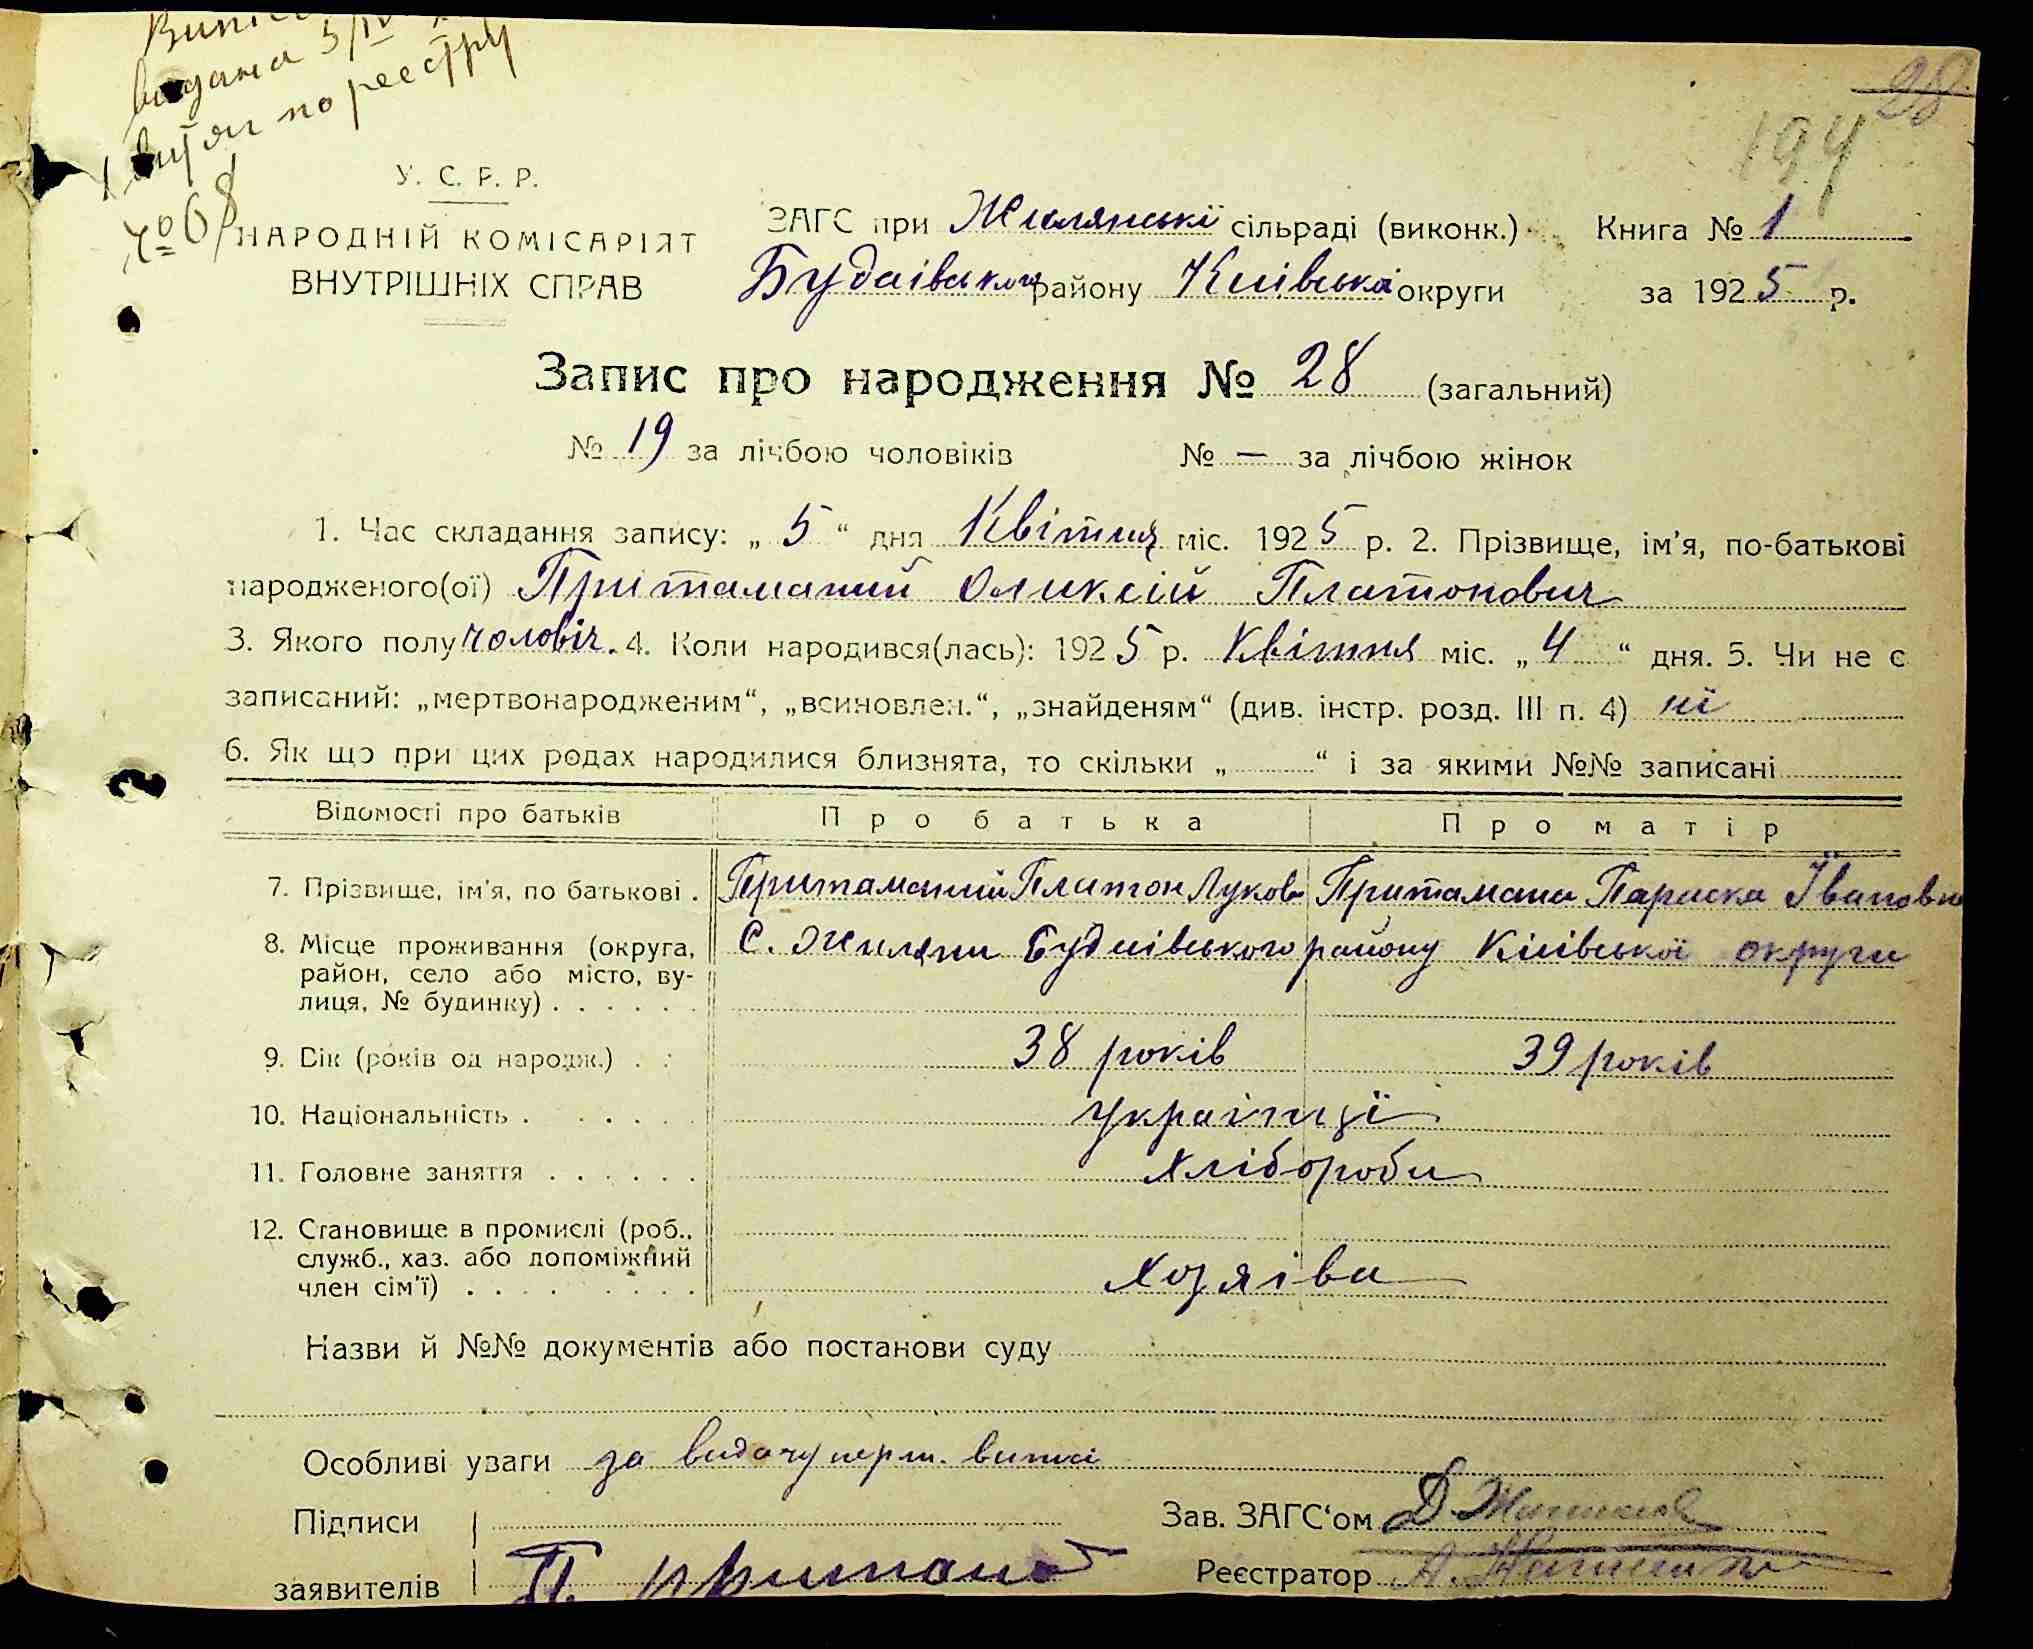 видана 5/IV
витяг по реєстру
№ 68
28
194
У. С. Р. Р.
НАРОДНІЙ КОМІСАРІЯТ
ВНУТРІШНІХ СПРАВ
ЗАГС при Жилянські сільраді (виконк.) Книга № 1
Будаівського району Киівськоі округи за 1925 р.
Запис про народження № 28 (загальний)
№ 19 за лічбою чоловіків № — за лічбою жінок
1. Час складання запису: „ 5 “ дня Квітня міс. 1925 р. 2. Прізвище, ім’я, по-батькові
народженого(ої) Притаманий Олексій Платонович
3. Якого полу чоловіч. 4. Коли народився(лась): 1925 р. Квітня міс. „ 4 “ дня. 5. Чи не є
записаний: „мертвонародженим“, „всиновлен.“, „знайденям“ (див. інстр. розд. III п. 4) ні
6. Як що при цих родах народилися близнята, то скільки „ “ і за якими №№ записані
Відомості про батьків Про батька Про матір
7. Прізвище, ім’я, по батькові . Притаманий Платон Луков Притамана Параска Івановна
8. Місце проживання (округа, С. Жиляни Будаівського району Киівської округи
район, село або місто, ву-
лиця, № будинку) . . . . . .
9. Вік (років од народж.) . : 38 років 39 років
10. Національність . . . . . . українці
11. Головне заняття . . . . . . Хлібороби
12. Становище в промислі (роб.,
служб., хаз. або допоміжний
член сім’ї) . . . . . . . . Хозяіва
Назви й №№ документів або постанови суду
Особливі уваги за видачу перш. витяг
Підписи Зав. ЗАГС‘ом Д.
заявителів П. Притаман Реєстратор А.